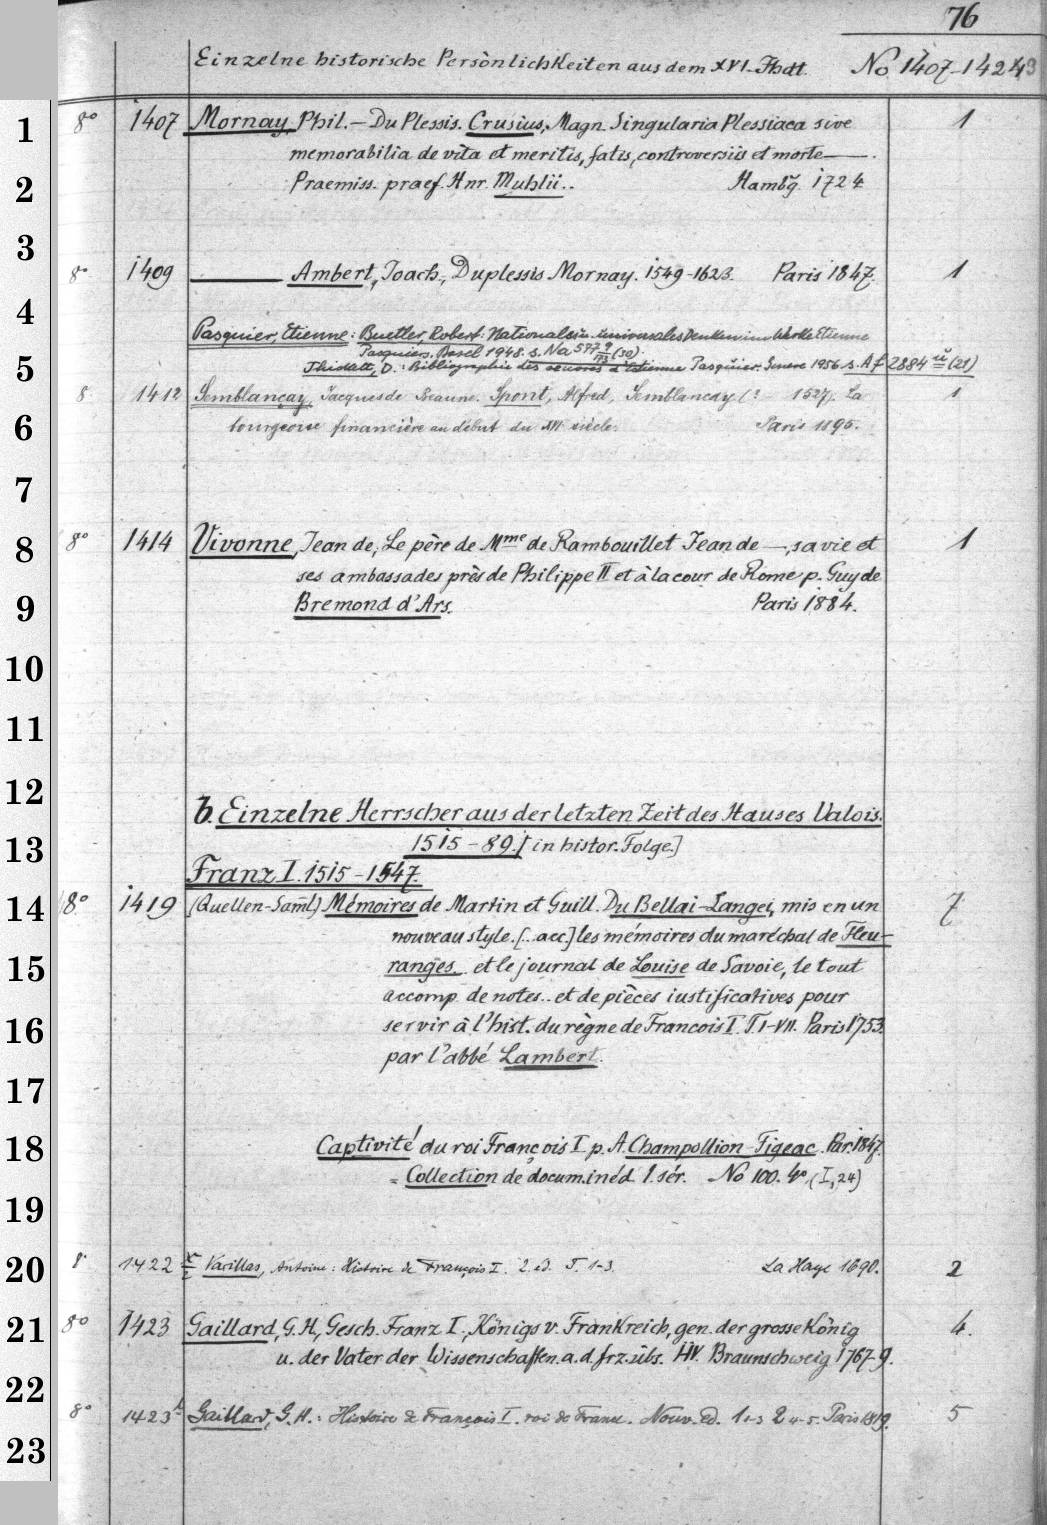 76
Einzelne historische Persönlichkeiten aus dem XVI. Jhdt. No 1407-1423
1 8° 1407 Mornay, Phil. — Du Plessis. Crusius, Magn. Singularia Plessiaca sive 1
memorabilia de vita et meritis, fatis, controversiis et morte —.
2 Praemiss. praef. Hnr. Muhlii.. Hambg. 1724
3
8° 1409 — Ambert, Joach., Duplessis Mornay. 1549-1623. Paris 1847. 1
4
Pasquier, Etienne: Buetler, Robert: Nationales u. universales Denken im Werke Etienne
Pasquiers. Basel 1948. s. Na (50).
5 D.: Bibliographie des oeuvres d'Estienne Pasquier. Geneve 1956 s. Af 2884 (21)
8 1412 Semblançay, Jacques de Beaune. Spont, Alfred, Semblancay (? - 1527). La 1
6 bourgeoisie financière au début du XVI siècle. Paris 1895.
7
8 8° 1414 Vivonne, Jean de, Le père de Mme de Rambouillet Jean de —, sa vie et 1
ses ambassades près de Philippe II et à la cour de Rome p. Guy de
9 Bremond d'Ars. Paris 1884.
10
11
12
b. Einzelne Herrscher aus der letzten Zeit des Hauses Valois.
13 1515-89. [in histor. Folge.]
Franz I. 1515-1547.
14 8° 1419 (Quellen-Saml) Mémoires de Martin et Guill. Du Bellai-Langei, mis en un 7
nouveau style. [..acc] les mémoires du maréchal de Fleu-
15 ranges et le journal de Louise de Savoie, le tout
accomp. de notes.. et de pièces iustificatives pour
16 servir à l'hist. du règne de Francois I. T. I-VII. Paris 1753.
par l'abbé Lambert.
17
18 Captivité du roi François I p. A. Champollion-Figeac. Par. 1847.
= Collection de docum. inéd. 1. sér. No 100. 4°. (I, 24)
19
20 8° 1422 Varillas, Antoine: Histoire de François I. 2. ed. T. 1-3. La Haye 1690. 2
21 8° 1423 Gaillard, G. H., Gesch. Franz I., Königs v. Frankreich, gen. der grosse König 4.
u. der Vater der Wissenschaften. a. d. frz. übs. Braunschweig 1767-9.
22
8° 1423b Gaillard, G. H.: Histoire de François I. roi de France. Nouv. Ed. 1 1-3 2 4-5. Paris 1819. 5
23